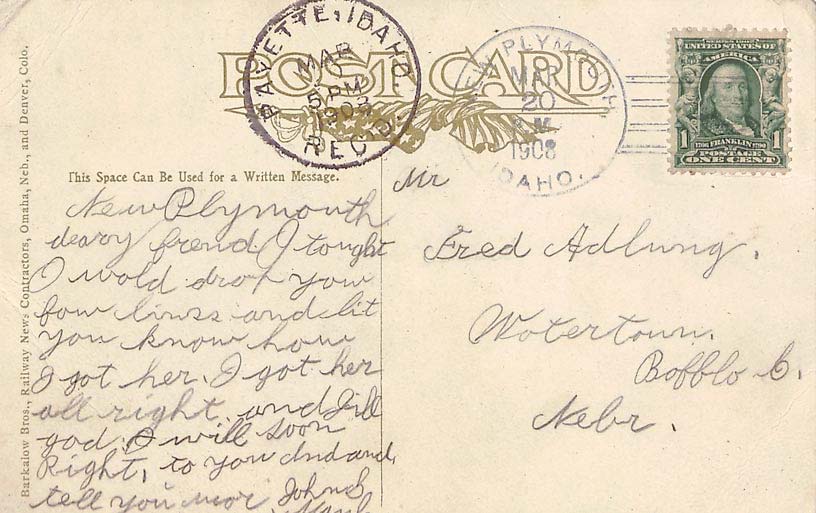 POST CARD
PAYETTE, IDAHO.
MAR
5 PM
1908
REC'D.
PLYMOUTH,
MAR
20
M
1908
IDAHO.
SERIES 1902
UNITED STATES OF AMERICA
1 1
1706 FRANKLIN 1790
POSTAGE
ONE CENT
Barkalow Bros., Railway News Contractors, Omaha, Neb., and Denver, Colo.
This Space Can Be Used for a Written Message.
New Plymouth
deary frend. I tought
I wold drop you
fow lines and lit
you know how
I got her. I got her
all right. and Fill
god. I will soon
Right, to you and
tell you mor John
Mr
Fred Adlung.
Wotertown.
Bofflo C.
Nebr.